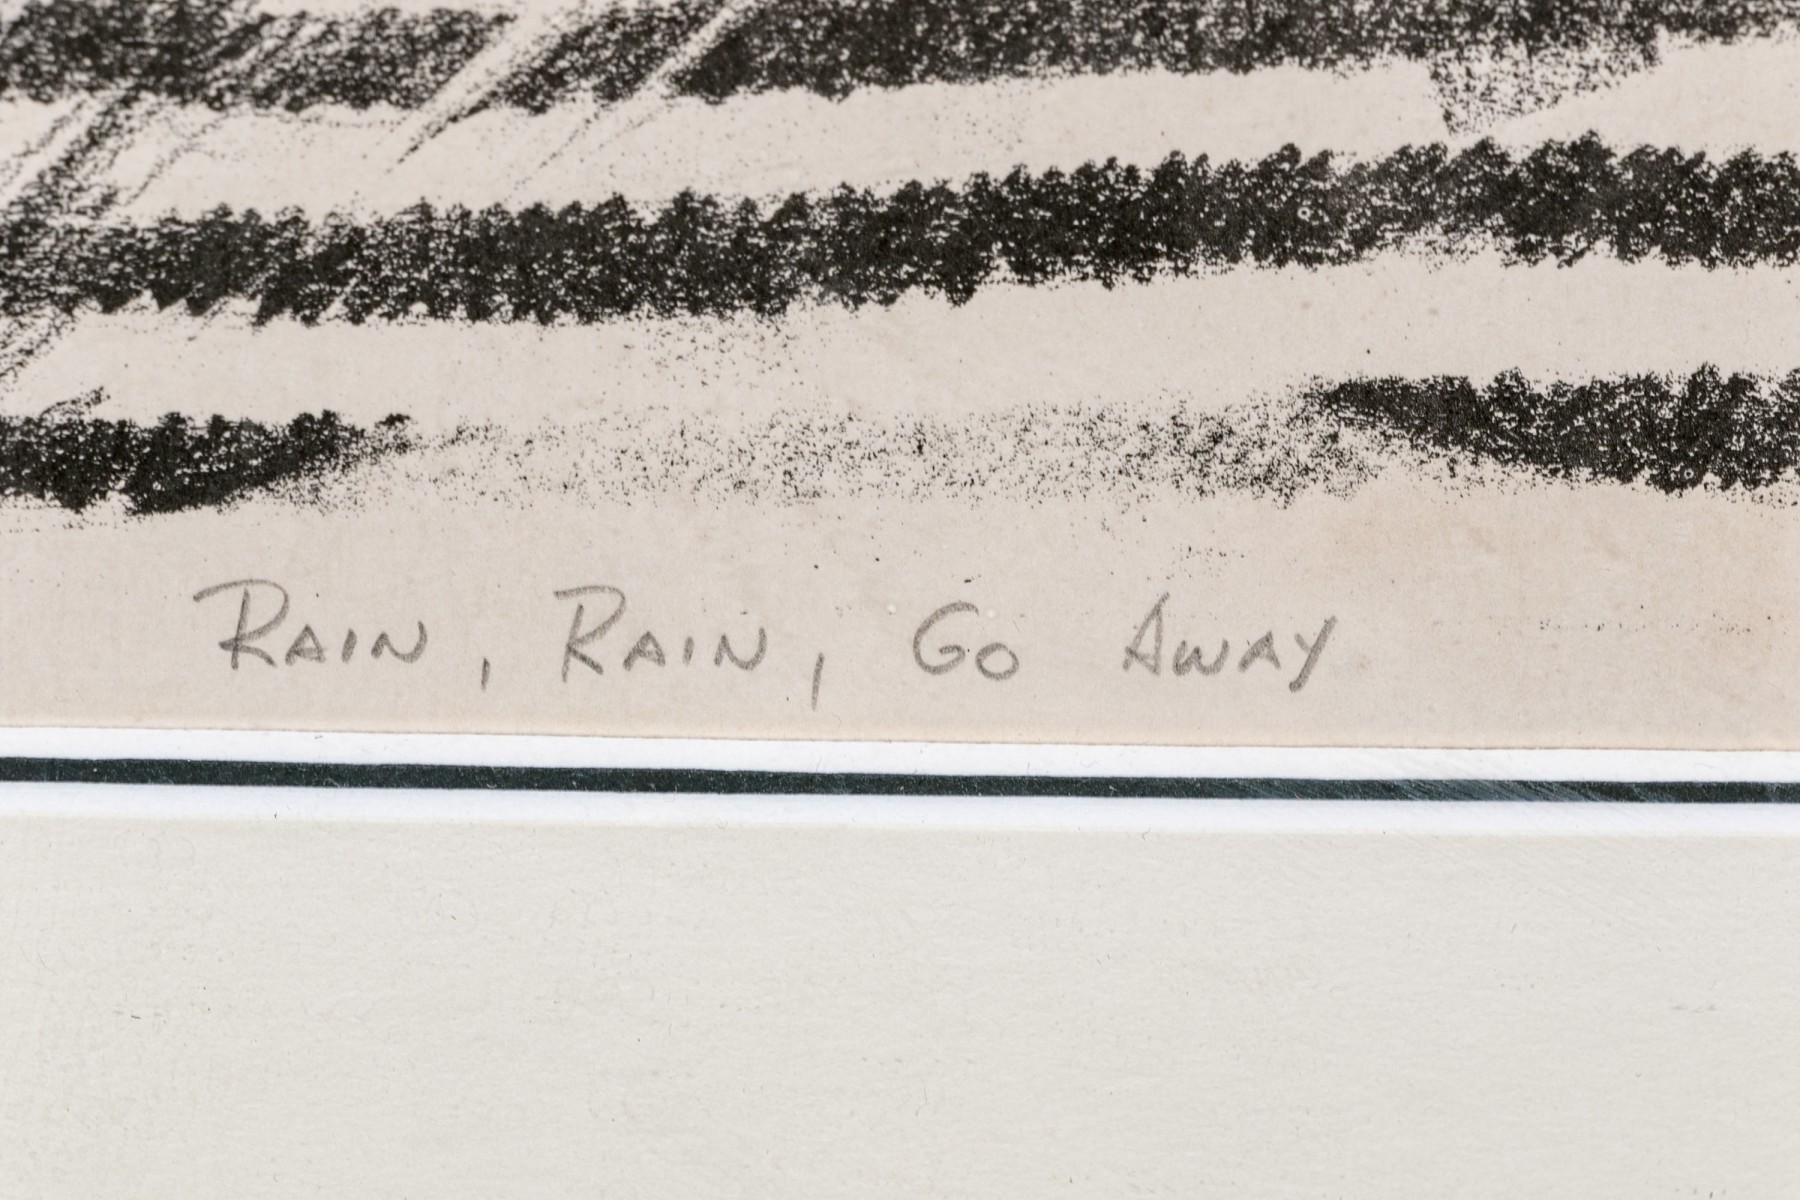 Rain, Rain, Go Away